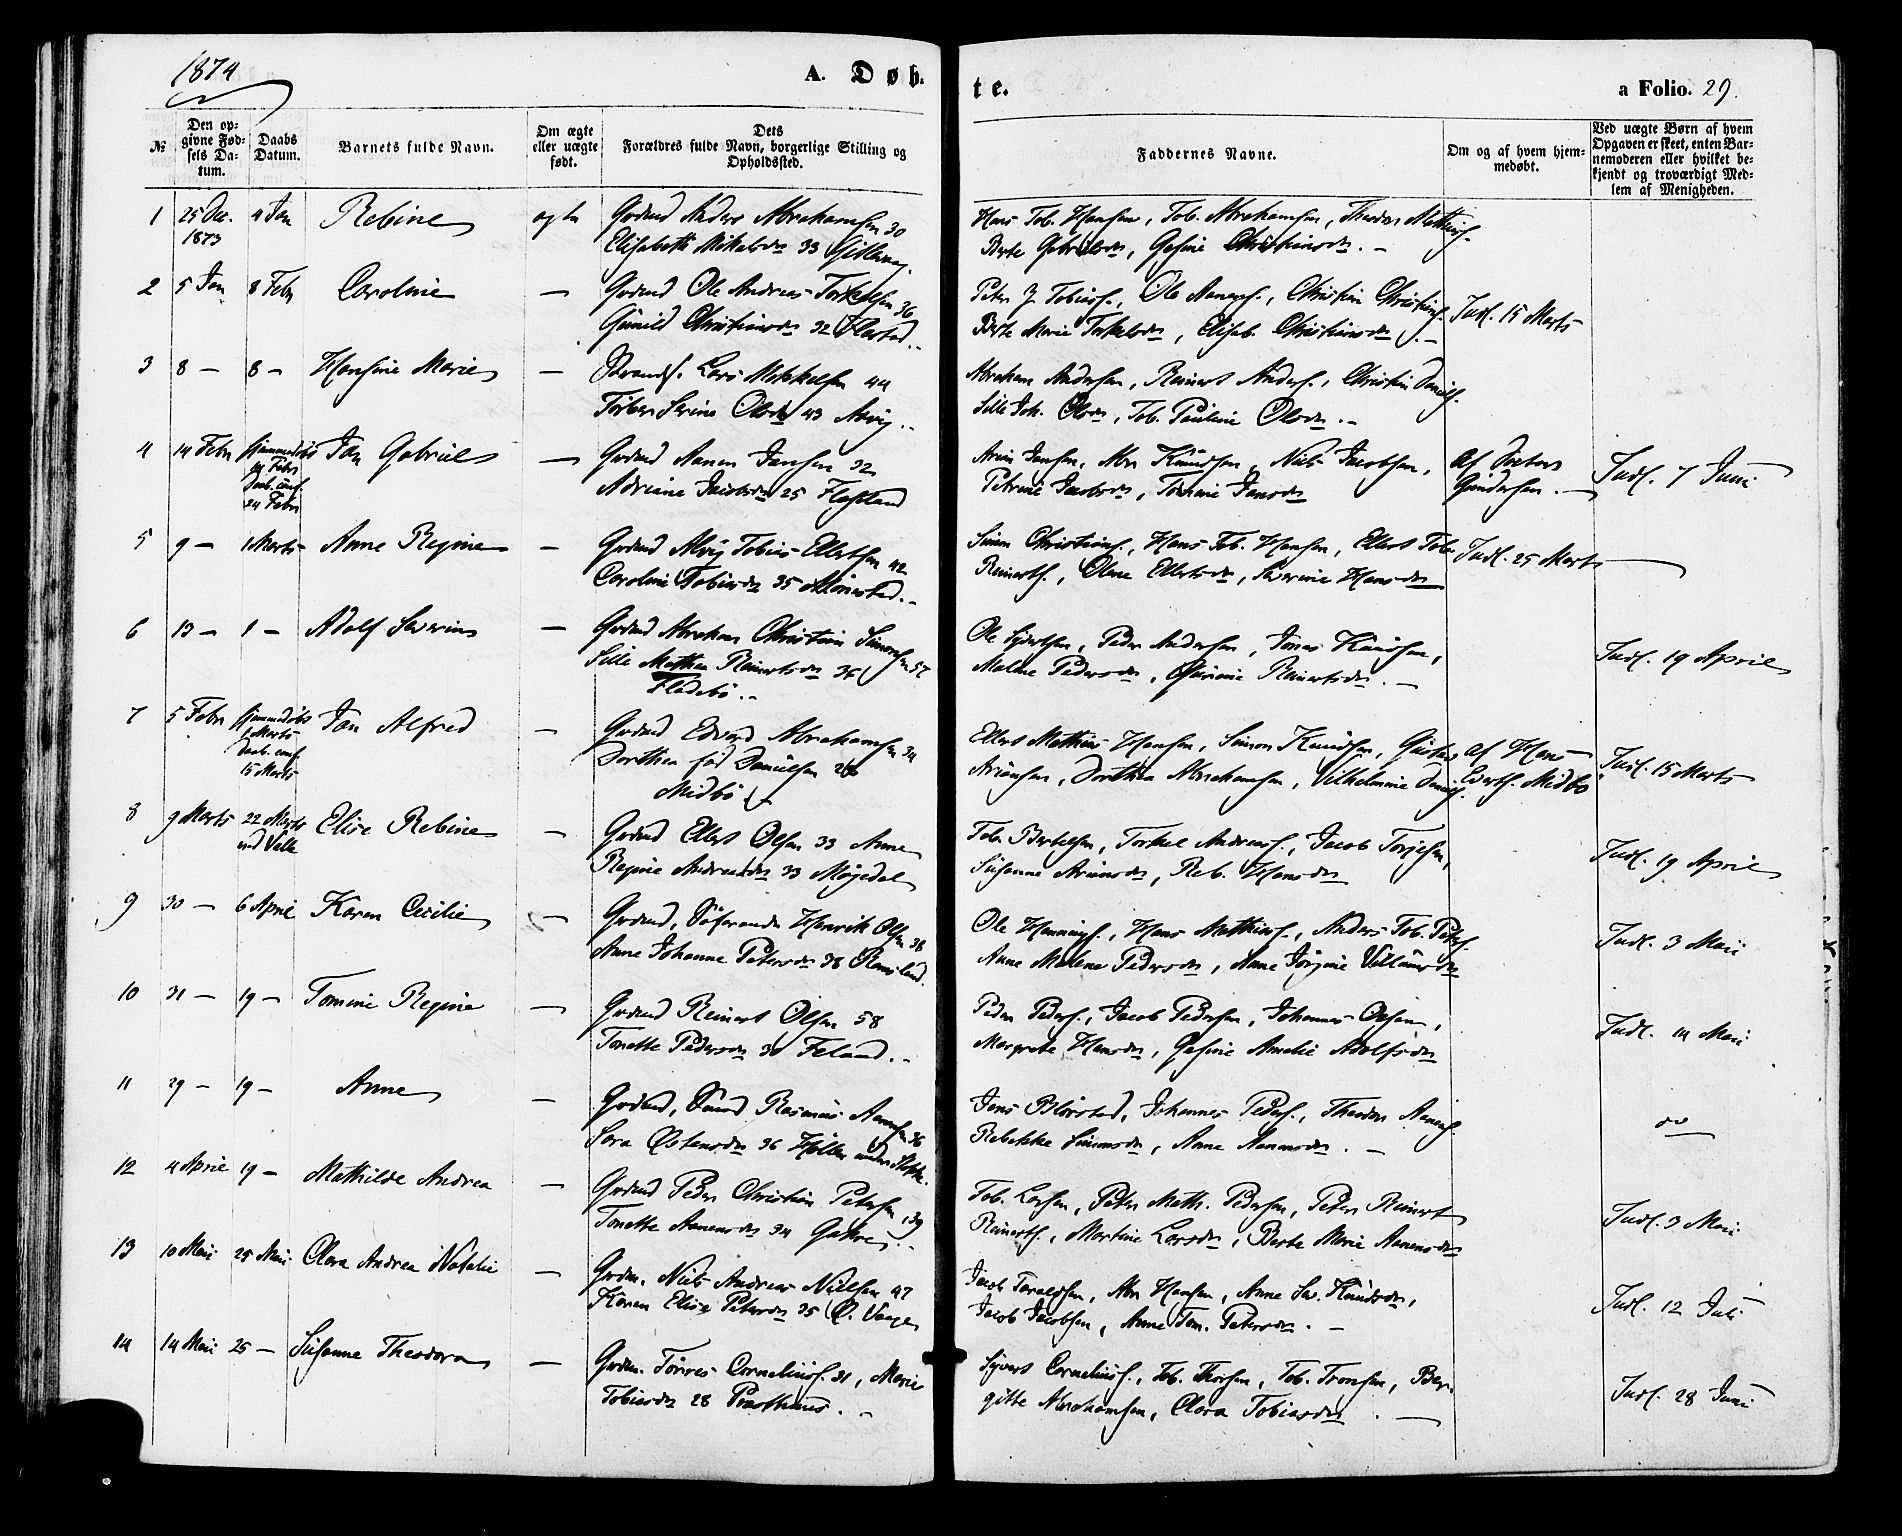 1874
A. Døb-
te.
a Folio. 29.
№
Den op-
givne Fød-
sels Da-
tum.
Daabs
Datum.
Barnets fulde Navn.
Om ægte
eller uægte
født.
Dets
Forældres fulde Navn, borgerlige Stilling og
Opholdssted.
Faddernes Navne.
Om og af hvem hjem-
medøbt.
Ved uægte Børn af hvem
Opgaven er skeet, enten Bar-
nemoderen eller hvilket be-
kjendt og troværdigt Med-
lem af Menigheden.
1 25 Dec. 4 Jan Rebine ægte Grdmd Anders Abrahamsen 30
1873 Elisabeth Mikelsdr 33
Hans Tob. Hansen, Tob. Abrahamsen, Theodor Mathias.
Berte Gabrielsdr, Gesine Christiansdr. -
2 5 Jan 8 Febr Caroline — Grdmd Ole Andreas Torkelsen 36
Gunild Christiansdr 32
Peter J Tobias., Ole Aanens., Christian Christians.
Berte Marie Torkelsdr, Elisab. Christiansdr. -
Indl. 15 Marts
3 8 — 8 — Hansine Marie — Lars Mikkelsen 44
Serine Olsdr 43
Abraham Andersen, Reinert Anders., Christian Daniels.
Sille Joh. Olsdr, Tob. Pauline Olsdr. -
4 14 Febr hjemmedøbt Jan Gabriel — Grdmd Aanen Jansen 32
14 Febr
Daab. conf.
24 Febr
Adriane Jacobsdr 25 Flegstad
Arian Jansen, Abr Knudsen, Niels Jacobsen,
Petrine Jacobsdr, Tomine Jansdr
af Doctor
Gundersen. -
Indl. 7 Juni
5 9 — 1 Marts Anne Regine — Grdmd Alvig Tobias Ellertsen 42
Caroline Tobiasdr 35
Simon Christians., Hans Tob. Hansen, Ellert Tob.
Reinerts., Olene Ellertsdr, Severine Hansdr
Indl. 25 Marts
6 13 — 1 — Adolf Severin — Grdmd Abraham Christian Simonsen 57
Sille Mathea Reinertsdr 36
Fladebø. -
Ole Sjvertsen, Peder Andersen, Jonas Knudsen,
Malene Pedersdr, Gurine Reinertsdr. -
Indl. 19 April
7 5 Febr hjemmedøbt Jan Alfred — Grdmd Edvard Abrahamsen 34
1 Marts
Daab. conf.
15 Marts
Dorthea fød Danielsen
Midbø
Ellert Mathias Hansen, Simon Knudsen, Gustav
Ariansen, Dorthea Abrahamsen, Vilhelmine Daniels.
af Hans
Everts. Midbø
Indl. 15 Marts
8 9 Marts 22 Marts Elise Rebine — Grdmd Ellert Olsen 33 Anne
ved Valle
Regine Andreasdr 33 Møgedal
Tob. Bertelsen, Torkel Andreas., Jacob Torjesen,
Susanne Ariansdr, Reb. Hansdr
Indl. 19 April
9 30 — 6 April Karen Cecilie — Grdmd, Søfarende Henrik Olsen 38
Anne Johanne Petersdr 38
Ole Hennings., Hans Mathias., Anders Tob. Peters.
Anne Malene Pedersdr, Anne Jørgine Villumsdr
Indl. 3 Mai
10 31 — 19 — Tomine Regine — Grdmd Reinert Olsen 58
Tonette Pedersdr 30 Feland. -
Peder Peders., Jacob Pedersen, Johannes Olsen,
Margrete Hansdr, Gesine Amalie Adolfsdr
Indl. 14 Mai
11 29 — 19 — Anne — Grdmd, Smed Rasmus Aanensen 36
Sara Ostensdr 36
Jens Blørstad, Johannes Peders., Theodor Aanens.
Rebekke Simonsdr, Anne Aanensdr. -
12 4 April 19 — Mathilde Andrea — Grdmd Peder Christian Petersen, 39
Tonette Aanensdr 34
Tob. Larsen, Peter Math. Pedersen, Peter Reinert
Reinerts., Martine Larsdr, Berte Marie Aanensdr
Indl. 3 Mai
13 10 Mai 25 Mai Clara Andrea Natalie — Grdm. Niels Andreas Nielsen 47
Karen Elise Petersdr 35
Jacob Taraldsen, Abr Hansen, Anne Sev. Knudsdr,
Jacob Jacobsen, Anne Tom. Petersdr. -
Indl. 12 Juli
14 14 Mai 25 — Susanne Theodora — Grdm. Tørres Cornelius. 31, Marie
Tobiasdr 28
Sjvert Cornelius., Tob. Thorsen, Tob. Tronsen, Ber-
gitte Abrahamsen, Clara Tobiasdr. —
Indl. 28 Juni